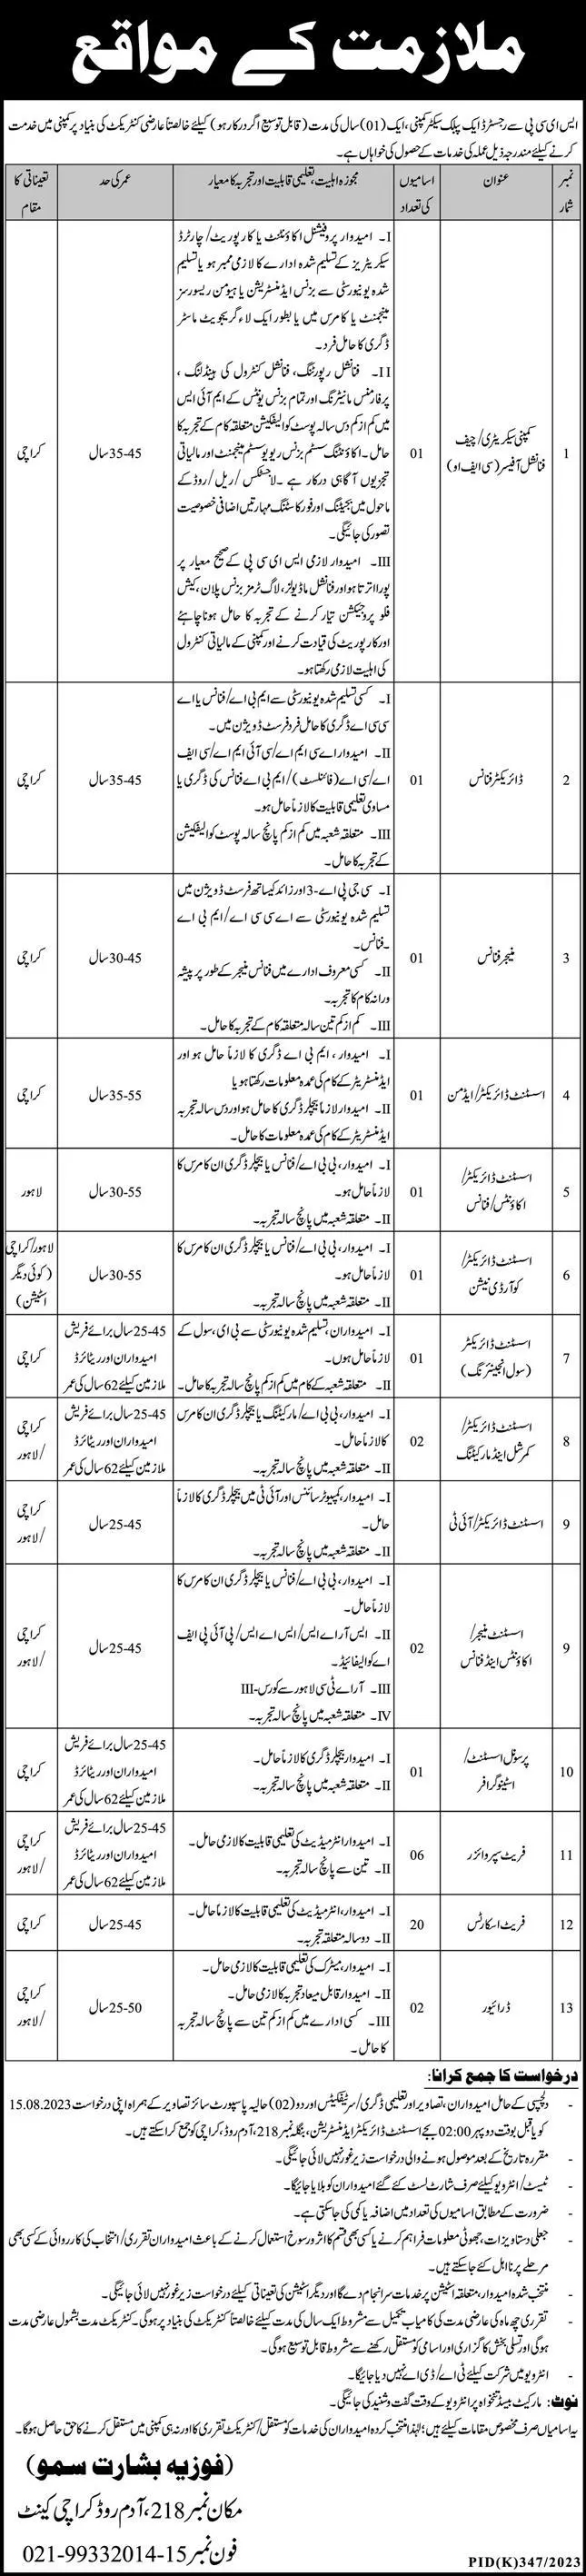 ملازمت کے مواقع
ایس ای سی پی سے رجسٹرڈ ایک پبلک سیکٹر کمپنی، ایک (01) سال کی مدت (قابل توسیع اگر درکار ہو) کیلئے خالصتاً عارضی کنٹریکٹ کی بنیاد پر کمپنی میں خدمت
کرنے کیلئے مندرجہ ذیل عملہ کی خدمات کے حصول کی خواہاں ہے۔
نمبر شمار
عنوان
اسامیوں کی تعداد
مجوزہ اہلیت، تعلیمی قابلیت اور تجربہ کا معیار
عمر کی حد
تعیناتی کا مقام
1
کمپنی سیکریٹری/چیف
فنانشل آفیسر (سی ایف او)
01
I۔ امیدوار پروفیشنل اکاؤنٹنٹ یا کارپوریٹ/چارٹرڈ
سیکریٹریز کے تسلیم شدہ ادارے کا لازمی ممبر ہو یا تسلیم
شدہ یونیورسٹی سے بزنس ایڈمنسٹریشن یا ہیومن ریسورسز
مینجمنٹ یا کامرس میں یا بطور ایک لاء گریجویٹ ماسٹر
ڈگری کا حامل فرد۔
II۔ فنانشل رپورٹنگ، فنانشل کنٹرول کی ہینڈلنگ،
پرفارمنس مانیٹرنگ اور تمام بزنس یونٹس کے ایم آئی ایس
میں کم از کم دس سالہ پوسٹ کوالیفکیشن متعلقہ کام کے تجربہ کا
حامل۔ اکاؤنٹنگ سسٹم بزنس ریویو سسٹم مینجمنٹ اور مالیاتی
تجزیوں آگاہی درکار ہے۔ لاجسٹکس/ریل/روڈ کے
ماحول میں بجیٹنگ اور فورکاسٹنگ مہارتیں اضافی خصوصیت
تصور کی جائیگی۔
III۔ امیدوار لازمی ایس ای سی پی کے صحیح معیار پر
پورا اترتا ہو اور فنانشل ماڈیولز، لانگ ٹرمز بزنس پلان، کیش
فلو پروجیکشن تیار کرنے کے تجربہ کا حامل ہونا چاہئے
اور کارپوریٹ کی قیادت کرنے اور کمپنی کے مالیاتی کنٹرول
کی اہلیت لازمی رکھتا ہو۔
35-45 سال
کراچی
2
ڈائریکٹر فنانس
01
I۔ کسی تسلیم شدہ یونیورسٹی سے ایم بی اے/فنانس یا اے
سی سی اے ڈگری کا حامل فرد فرسٹ ڈویژن میں۔
II۔ امیدوار اے سی ایم اے/سی آئی ایم اے/سی ایف
اے/سی اے (فائنلسٹ)/ایم بی اے فنانس کی ڈگری یا
مساوی تعلیمی قابلیت کا لازماً حامل ہو۔
III۔ متعلقہ شعبہ میں کم از کم پانچ سالہ پوسٹ کوالیفکیشن
کے تجربہ کا حامل۔
35-45 سال
کراچی
3
منیجر فنانس
01
I۔ سی جی پی اے-3 اور زائد کیساتھ فرسٹ ڈویژن میں
تسلیم شدہ یونیورسٹی سے اے سی سی اے/ایم بی اے
-فنانس۔
II۔ کسی معروف ادارے میں فنانس منیجر کے طور پر پیشہ
ورانہ کام کا تجربہ۔
III۔ کم از کم تین سالہ متعلقہ کام کے تجربہ کا حامل۔
30-45 سال
کراچی
4
اسسٹنٹ ڈائریکٹر/ایڈمن
01
I۔ امیدوار، ایم بی اے ڈگری کا لازماً حامل ہو اور
ایڈمنسٹریٹر کے کام کی عمدہ معلومات رکھتا ہو یا
II۔ امیدوار لازماً بیچلر ڈگری کا حامل ہو اور دس سالہ تجربہ
ایڈمنسٹریٹر کے کام کی عمدہ معلومات کا حامل۔
35-55 سال
کراچی
5
اسسٹنٹ ڈائریکٹر/
اکاؤنٹس/فنانس
01
I۔ امیدوار، بی بی اے/فنانس یا بیچلر ڈگری ان کامرس کا
لازماً حامل ہو۔
II۔ متعلقہ شعبہ میں پانچ سالہ تجربہ۔
30-55 سال
لاہور
6
اسسٹنٹ ڈائریکٹر/
کوآرڈی نیشن
01
I۔ امیدوار، بی بی اے/فنانس یا بیچلر ڈگری ان کامرس کا
لازماً حامل ہو۔
II۔ متعلقہ شعبہ میں پانچ سالہ تجربہ۔
30-55 سال
لاہور/کراچی
(کوئی دیگر
اسٹیشن)
7
اسسٹنٹ ڈائریکٹر
(سول انجینئرنگ)
01
I۔ امیدواران، تسلیم شدہ یونیورسٹی سے بی ای، سول کے
لازماً حامل ہوں۔
II۔ متعلقہ شعبہ کے کام میں کم از کم پانچ سالہ تجربہ کا حامل۔
25-45 سال برائے فریش
امیدواران اور ریٹائرڈ
ملازمین کیلئے 62 سال کی عمر
کراچی
8
اسسٹنٹ ڈائریکٹر/
کمرشل اینڈ مارکیٹنگ
02
I۔ امیدوار، بی بی اے/مارکیٹنگ یا بیچلر ڈگری ان کامرس
کا لازماً حامل۔
II۔ متعلقہ شعبہ میں پانچ سالہ تجربہ۔
25-45 سال برائے فریش
امیدواران اور ریٹائرڈ
ملازمین کیلئے 62 سال کی عمر
کراچی
/لاہور
9
اسسٹنٹ ڈائریکٹر/آئی ٹی
I۔ امیدوار، کمپیوٹر سائنس اور آئی ٹی میں بیچلر ڈگری کا لازماً
حامل۔
II۔ متعلقہ شعبہ میں پانچ سالہ تجربہ۔
25-45 سال
کراچی
/لاہور
9
اسسٹنٹ منیجر/
اکاؤنٹس اینڈ فنانس
02
I۔ امیدوار، بی بی اے/فنانس یا بیچلر ڈگری ان کامرس کا
لازماً حامل۔
II۔ ایس آر اے ایس/ایس اے ایس/پی آئی پی ایف
اے کوالیفائیڈ۔
III۔ آر اے ٹی سی لاہور سے کورس-III
IV۔ متعلقہ شعبہ میں پانچ سالہ تجربہ۔
25-45 سال
کراچی
/لاہور
10
پرسنل اسسٹنٹ/
اسٹینوگرافر
01
I۔ امیدوار بیچلر ڈگری کا لازماً حامل۔
II۔ متعلقہ شعبہ میں پانچ سالہ تجربہ۔
25-45 سال برائے فریش
امیدواران اور ریٹائرڈ
ملازمین کیلئے 62 سال کی عمر
کراچی
11
فریٹ سپروائزر
06
I۔ امیدوار انٹرمیڈیٹ کی تعلیمی قابلیت کا لازمی حامل۔
II۔ تین سے پانچ سالہ تجربہ۔
25-45 سال برائے فریش
امیدواران اور ریٹائرڈ
ملازمین کیلئے 62 سال کی عمر
کراچی
/لاہور
12
فریٹ اسکارٹس
20
I۔ امیدوار، انٹرمیڈیٹ کی تعلیمی قابلیت کا لازماً حامل۔
II۔ دو سالہ متعلقہ تجربہ۔
25-45 سال
کراچی
13
ڈرائیور
02
I۔ امیدوار، میٹرک کی تعلیمی قابلیت کا لازمی حامل۔
II۔ امیدوار قابل میعاد تجربہ کا لازمی حامل۔
III۔ کسی ادارے میں کم از کم تین سے پانچ سالہ تجربہ
کا حامل۔
25-50 سال
کراچی
/لاہور
درخواست کا جمع کرانا:
- دلچسپی کے حامل امیدواران، تصاویر اور تعلیمی ڈگری/سرٹیفکیٹس اور دو (02) حالیہ پاسپورٹ سائز تصاویر کے ہمراہ اپنی درخواست 15.08.2023
کو یا قبل بوقت دوپہر 02:00 بجے اسسٹنٹ ڈائریکٹر ایڈمنسٹریشن، بنگلہ نمبر 218، آدم روڈ، کراچی کو جمع کراسکتے ہیں۔
- مقررہ تاریخ کے بعد موصول ہونے والی درخواست زیرغور نہیں لائی جائیگی۔
- ٹیسٹ/انٹرویو کیلئے صرف شارٹ لسٹ کئے گئے امیدواران کو بلایا جائیگا۔
- ضرورت کے مطابق اسامیوں کی تعداد میں اضافہ یا کمی کی جاسکتی ہے۔
- جعلی دستاویزات، جھوٹی معلومات فراہم کرنے یا کسی بھی قسم کا اثر و رسوخ استعمال کرنے کے باعث امیدواران تقرری/انتخاب کی کارروائی کے کسی بھی
مرحلے پر نااہل کئے جاسکتے ہیں۔
- منتخب شدہ امیدوار، متعلقہ اسٹیشن پر خدمات سرانجام دے گا اور دیگر اسٹیشن کی تعیناتی کیلئے درخواست زیرغور نہیں لائی جائیگی۔
- تقرری چھ ماہ کی عارضی مدت کی کامیاب تکمیل سے مشروط ایک سال کی مدت کیلئے خالصتاً کنٹریکٹ کی بنیاد پر ہوگی۔ کنٹریکٹ مدت بشمول عارضی مدت
ہوگی اور تسلی بخش کارگزاری اور اسامی کو مستقل رکھنے سے مشروط قابل توسیع ہوگی۔
- انٹرویو میں شرکت کیلئے ٹی اے/ڈی اے نہیں دیا جائیگا۔
نوٹ: مارکیٹ بیسڈ تنخواہ پر انٹرویو کے وقت گفت و شنید کی جائیگی۔
یہ اسامیاں صرف مخصوص مقامات کیلئے ہیں؛ لہٰذا منتخب کردہ امیدواران کی خدمات کو مستقل/کنٹریکٹ تقرری کا اور نہ ہی کمپنی میں مستقل کرنے کا حق حاصل ہوگا۔
(فوزیہ بشارت سمو)
مکان نمبر 218، آدم روڈ کراچی کینٹ
فون نمبر 15-021-99332014
PID(K)347/2023